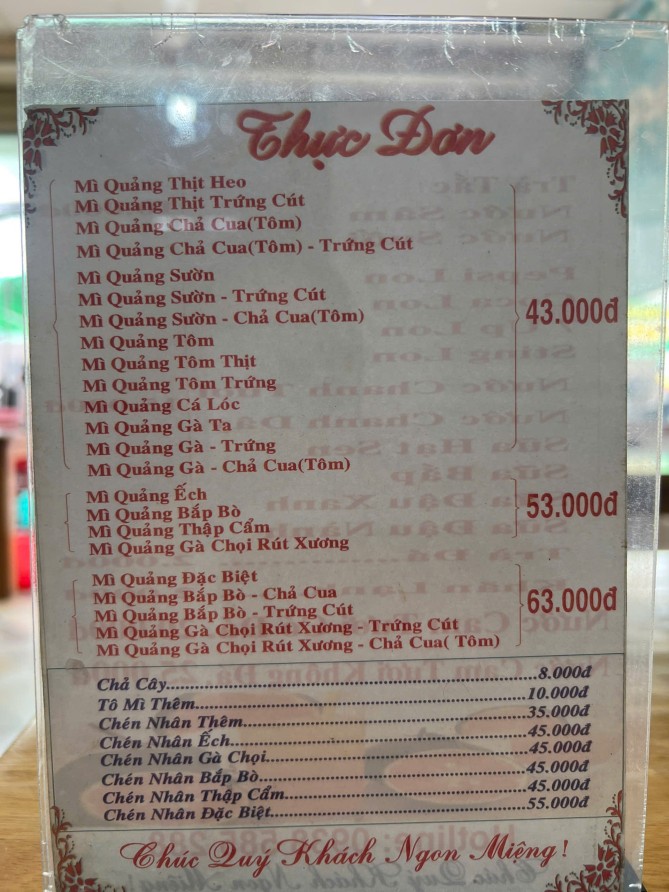 Thực Đơn
Mì Quảng Thịt Heo
Mì Quảng Thịt Trứng Cút
Mì Quảng Chả Cua(Tôm)
Mì Quảng Chả Cua(Tôm) - Trứng Cút
Mì Quảng Sườn
Mì Quảng Sườn - Trứng Cút
Mì Quảng Sườn - Chả Cua(Tôm)
Mì Quảng Tôm
Mì Quảng Tôm Thịt
Mì Quảng Tôm Trứng
Mì Quảng Cá Lóc
Mì Quảng Gà Ta
Mì Quảng Gà - Trứng
Mì Quảng Gà - Chả Cua(Tôm)
43.000đ
Mì Quảng Ếch
Mì Quảng Bắp Bò
Mì Quảng Thập Cẩm
Mì Quảng Gà Chọi Rút Xương
53.000đ
Mì Quảng Đặc Biệt
Mì Quảng Bắp Bò - Chả Cua
Mì Quảng Bắp Bò - Trứng Cút
Mì Quảng Gà Chọi Rút Xương - Trứng Cút
Mì Quảng Gà Chọi Rút Xương - Chả Cua( Tôm)
63.000đ
Chả Cây...8.000đ
Tô Mì Thêm...10.000đ
Chén Nhân Thêm...35.000đ
Chén Nhân Ếch...45.000đ
Chén Nhân Gà Chọi...45.000đ
Chén Nhân Bắp Bò...45.000đ
Chén Nhân Thập Cẩm...45.000đ
Chén Nhân Đặc Biệt...55.000đ
Chúc Quý Khách Ngon Miệng!